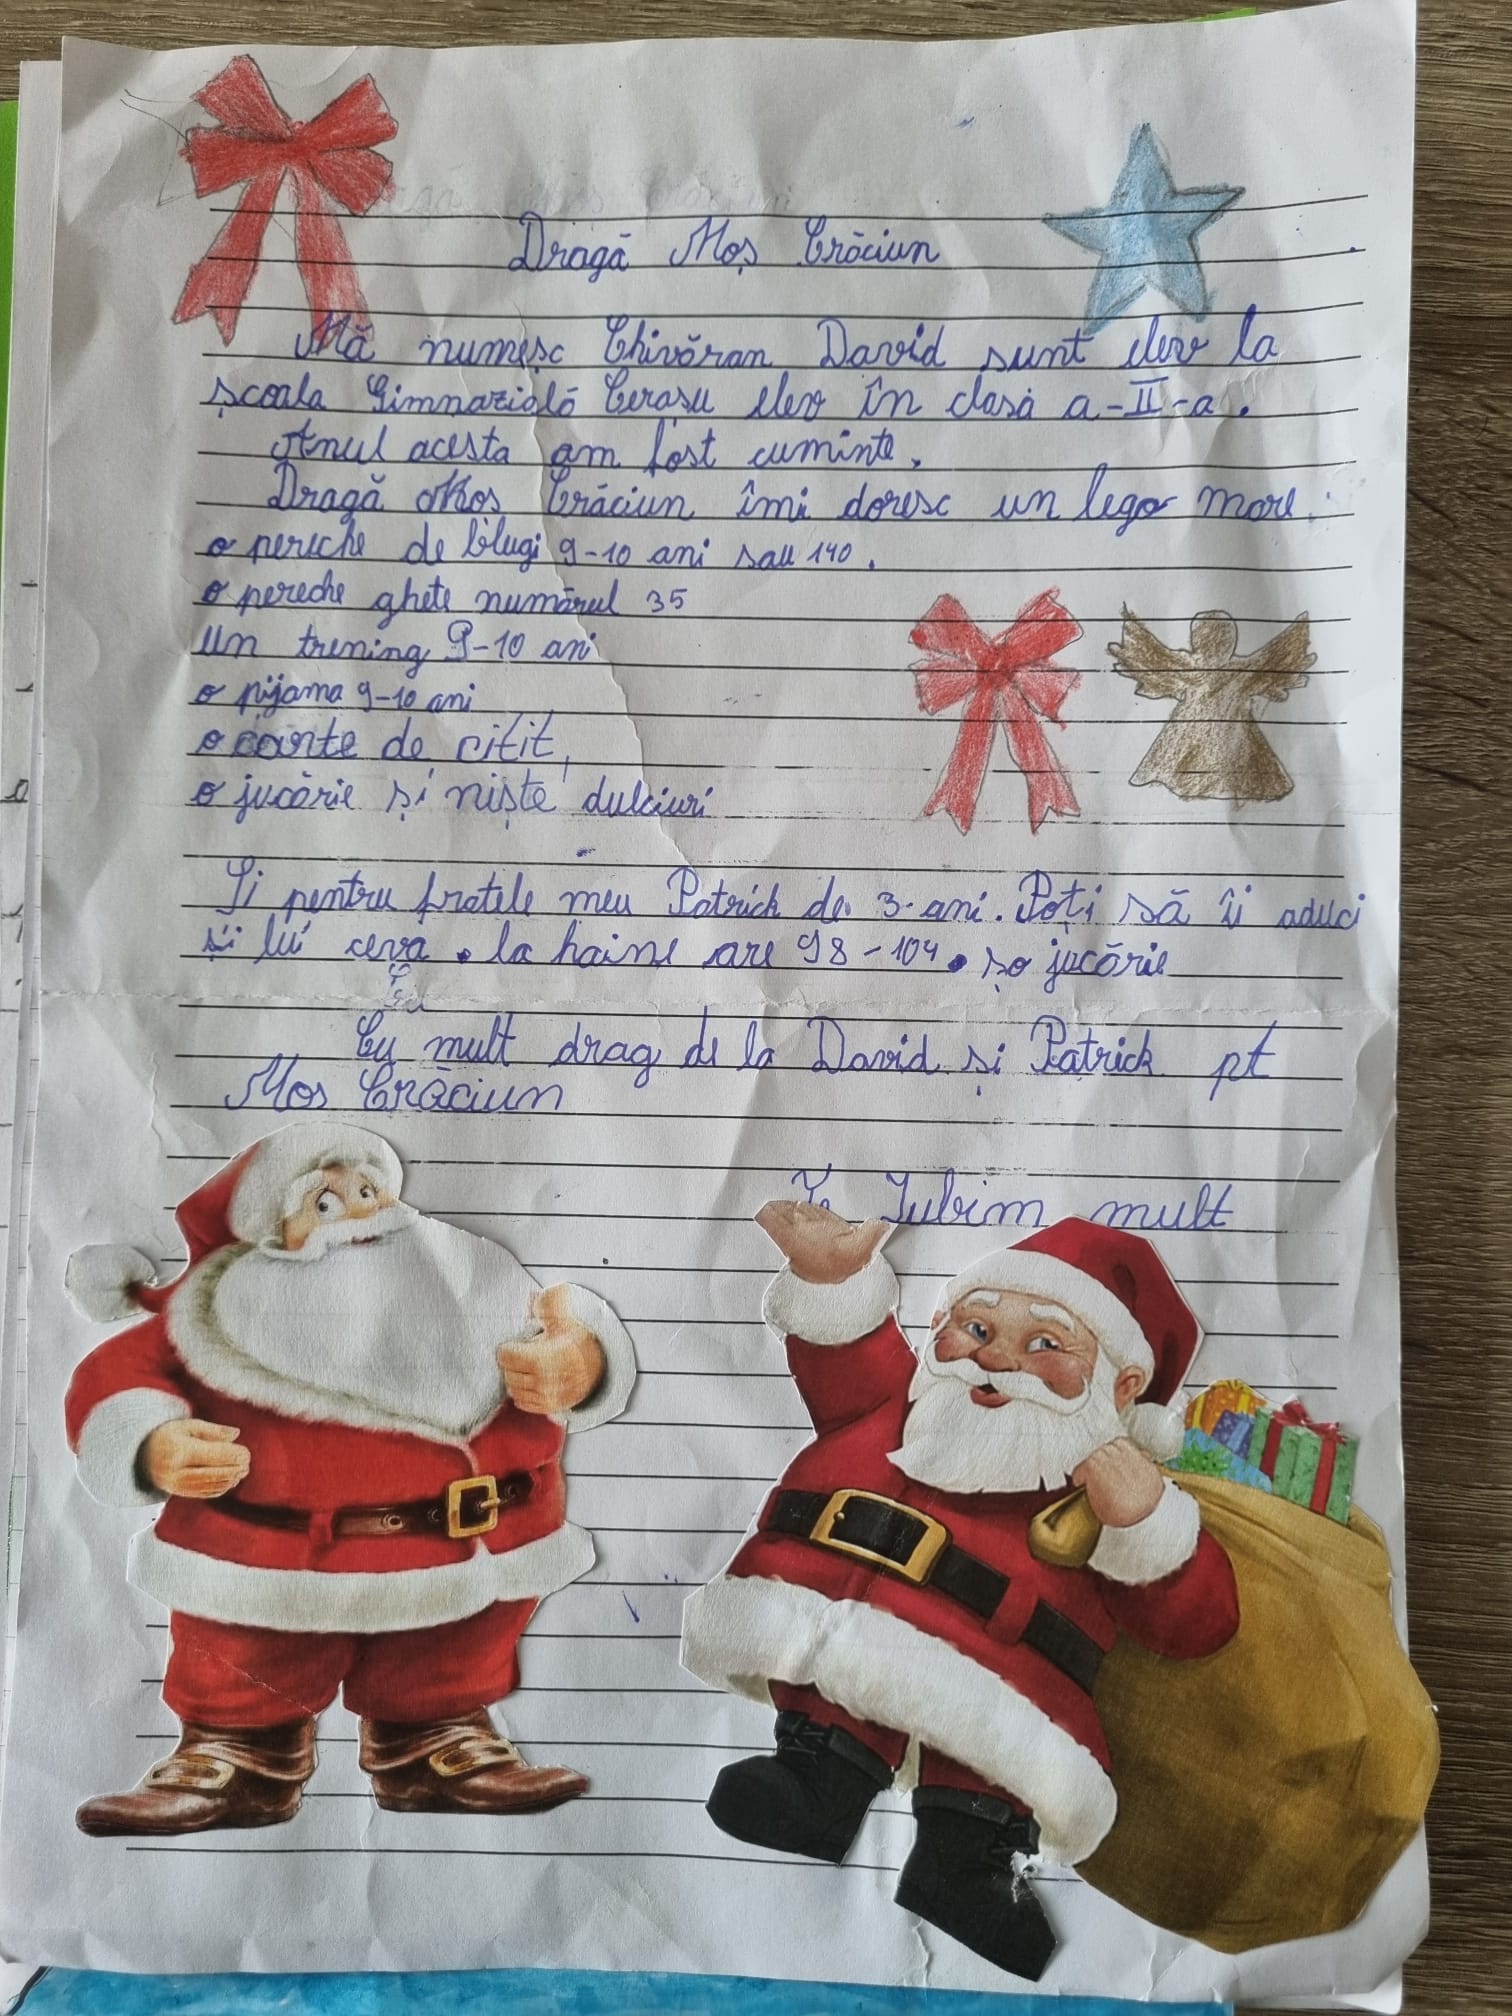 Dragă Moș Crăciun
Mă numesc Chivăran David sunt elev la
școala Gimnazială Cerașu elev în clasă a-II-a.
Anul acesta am fost cuminte.
Dragă Moș Crăciun îmi doresc un lego more.
o periche de blugi 9-10 ani sau 140.
o pereche ghete numărul 35
un trening 9-10 ani
o pijama 9-10 ani
o carte de citit,
o jucărie și niște dulciuri
Și pentru fratele meu Patrick de 3 ani. Poți să îi aduci
și lui ceva. la haine are 98-104. șo jucărie
Cu mult drag de la David și Patrick pt
Mos Crăciun
Te Iubim mult